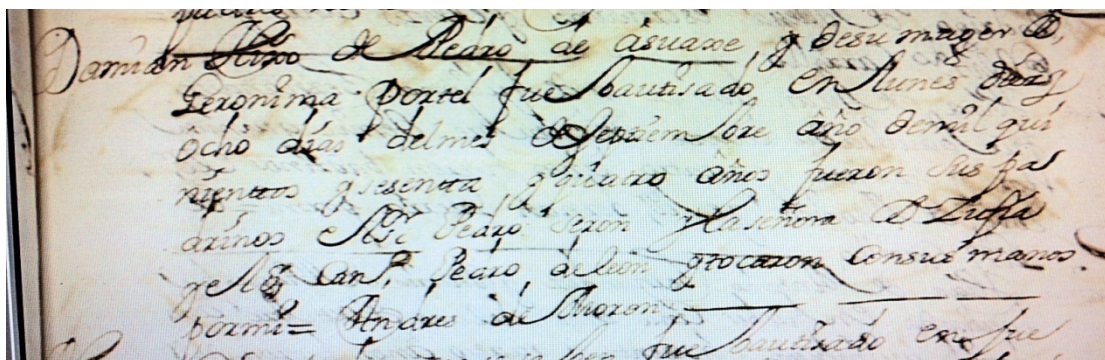 Damian Hixo de Pedro de asuaxe, y desu muger D,
Geronima Portel fue bautisado en lunes diez y
ocho dias del mes de Septiembre año demil qui
nientos y sesenta y quatro años fueron sus pa
drinos el Sr Pedro seron y la señora D
Can. Pedro de leon y tocaron consus manos.
pormi = Andres de Moron
fue bautisado en